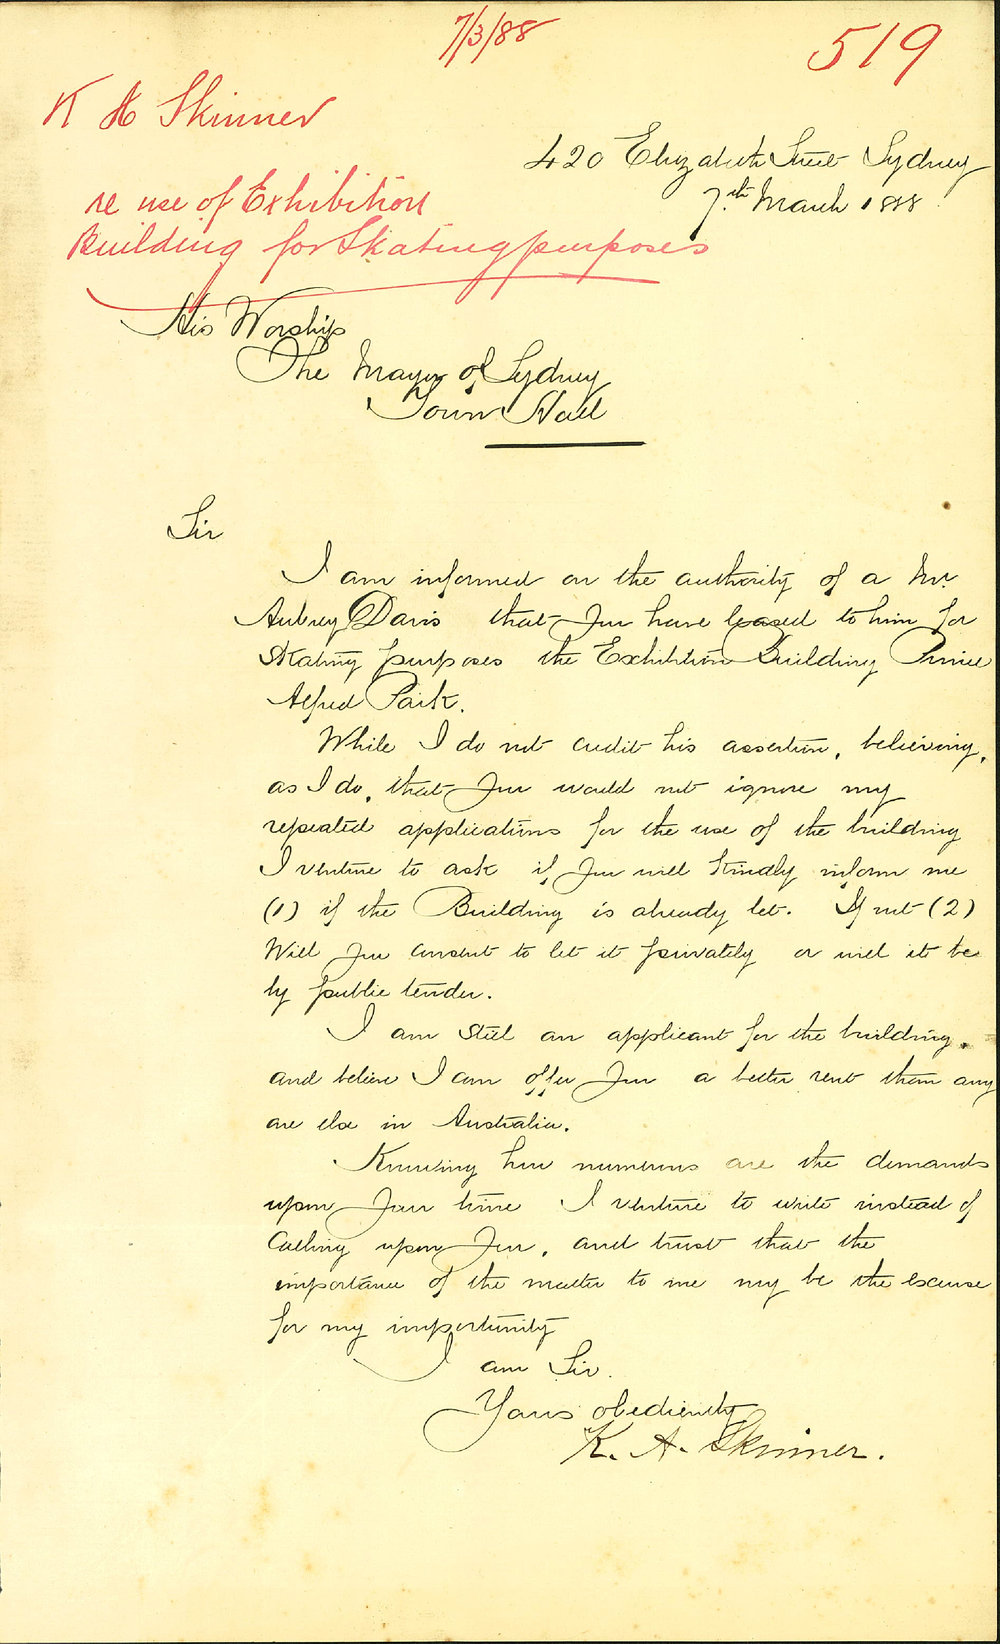 7/3/88
519
K A Skinner
420 Elizabeth Street Sydney
7.th March 1888
re use of Exhibition
Building for Skating purposes
His Worship
The Mayor of Sydney
Town Hall
Sir
I am informed on the authority of a Mr.
Aubrey Davis that you have leased to him for
Skating purposes the Exhibition Building Prince
Alfred Park.
While I do not credit his assertion, believing,
as I do, that you would not ignore my
repeated applications for the use of the building
I venture to ask if you will kindly inform me
(1) if the Building is already let. If not (2)
Will you consent to let it privately or will it be
by public tender.
I am still an applicant for the building.
and believe I can offer you a better rent than any
one else in Australia.
Knowing how numerous are the demands
upon your time I venture to write instead of
Calling upon you, and trust that the
importance of the matter to me my be the excuse
for my importunity
I am Sir.
Yours obediently
K. A. Skinner.